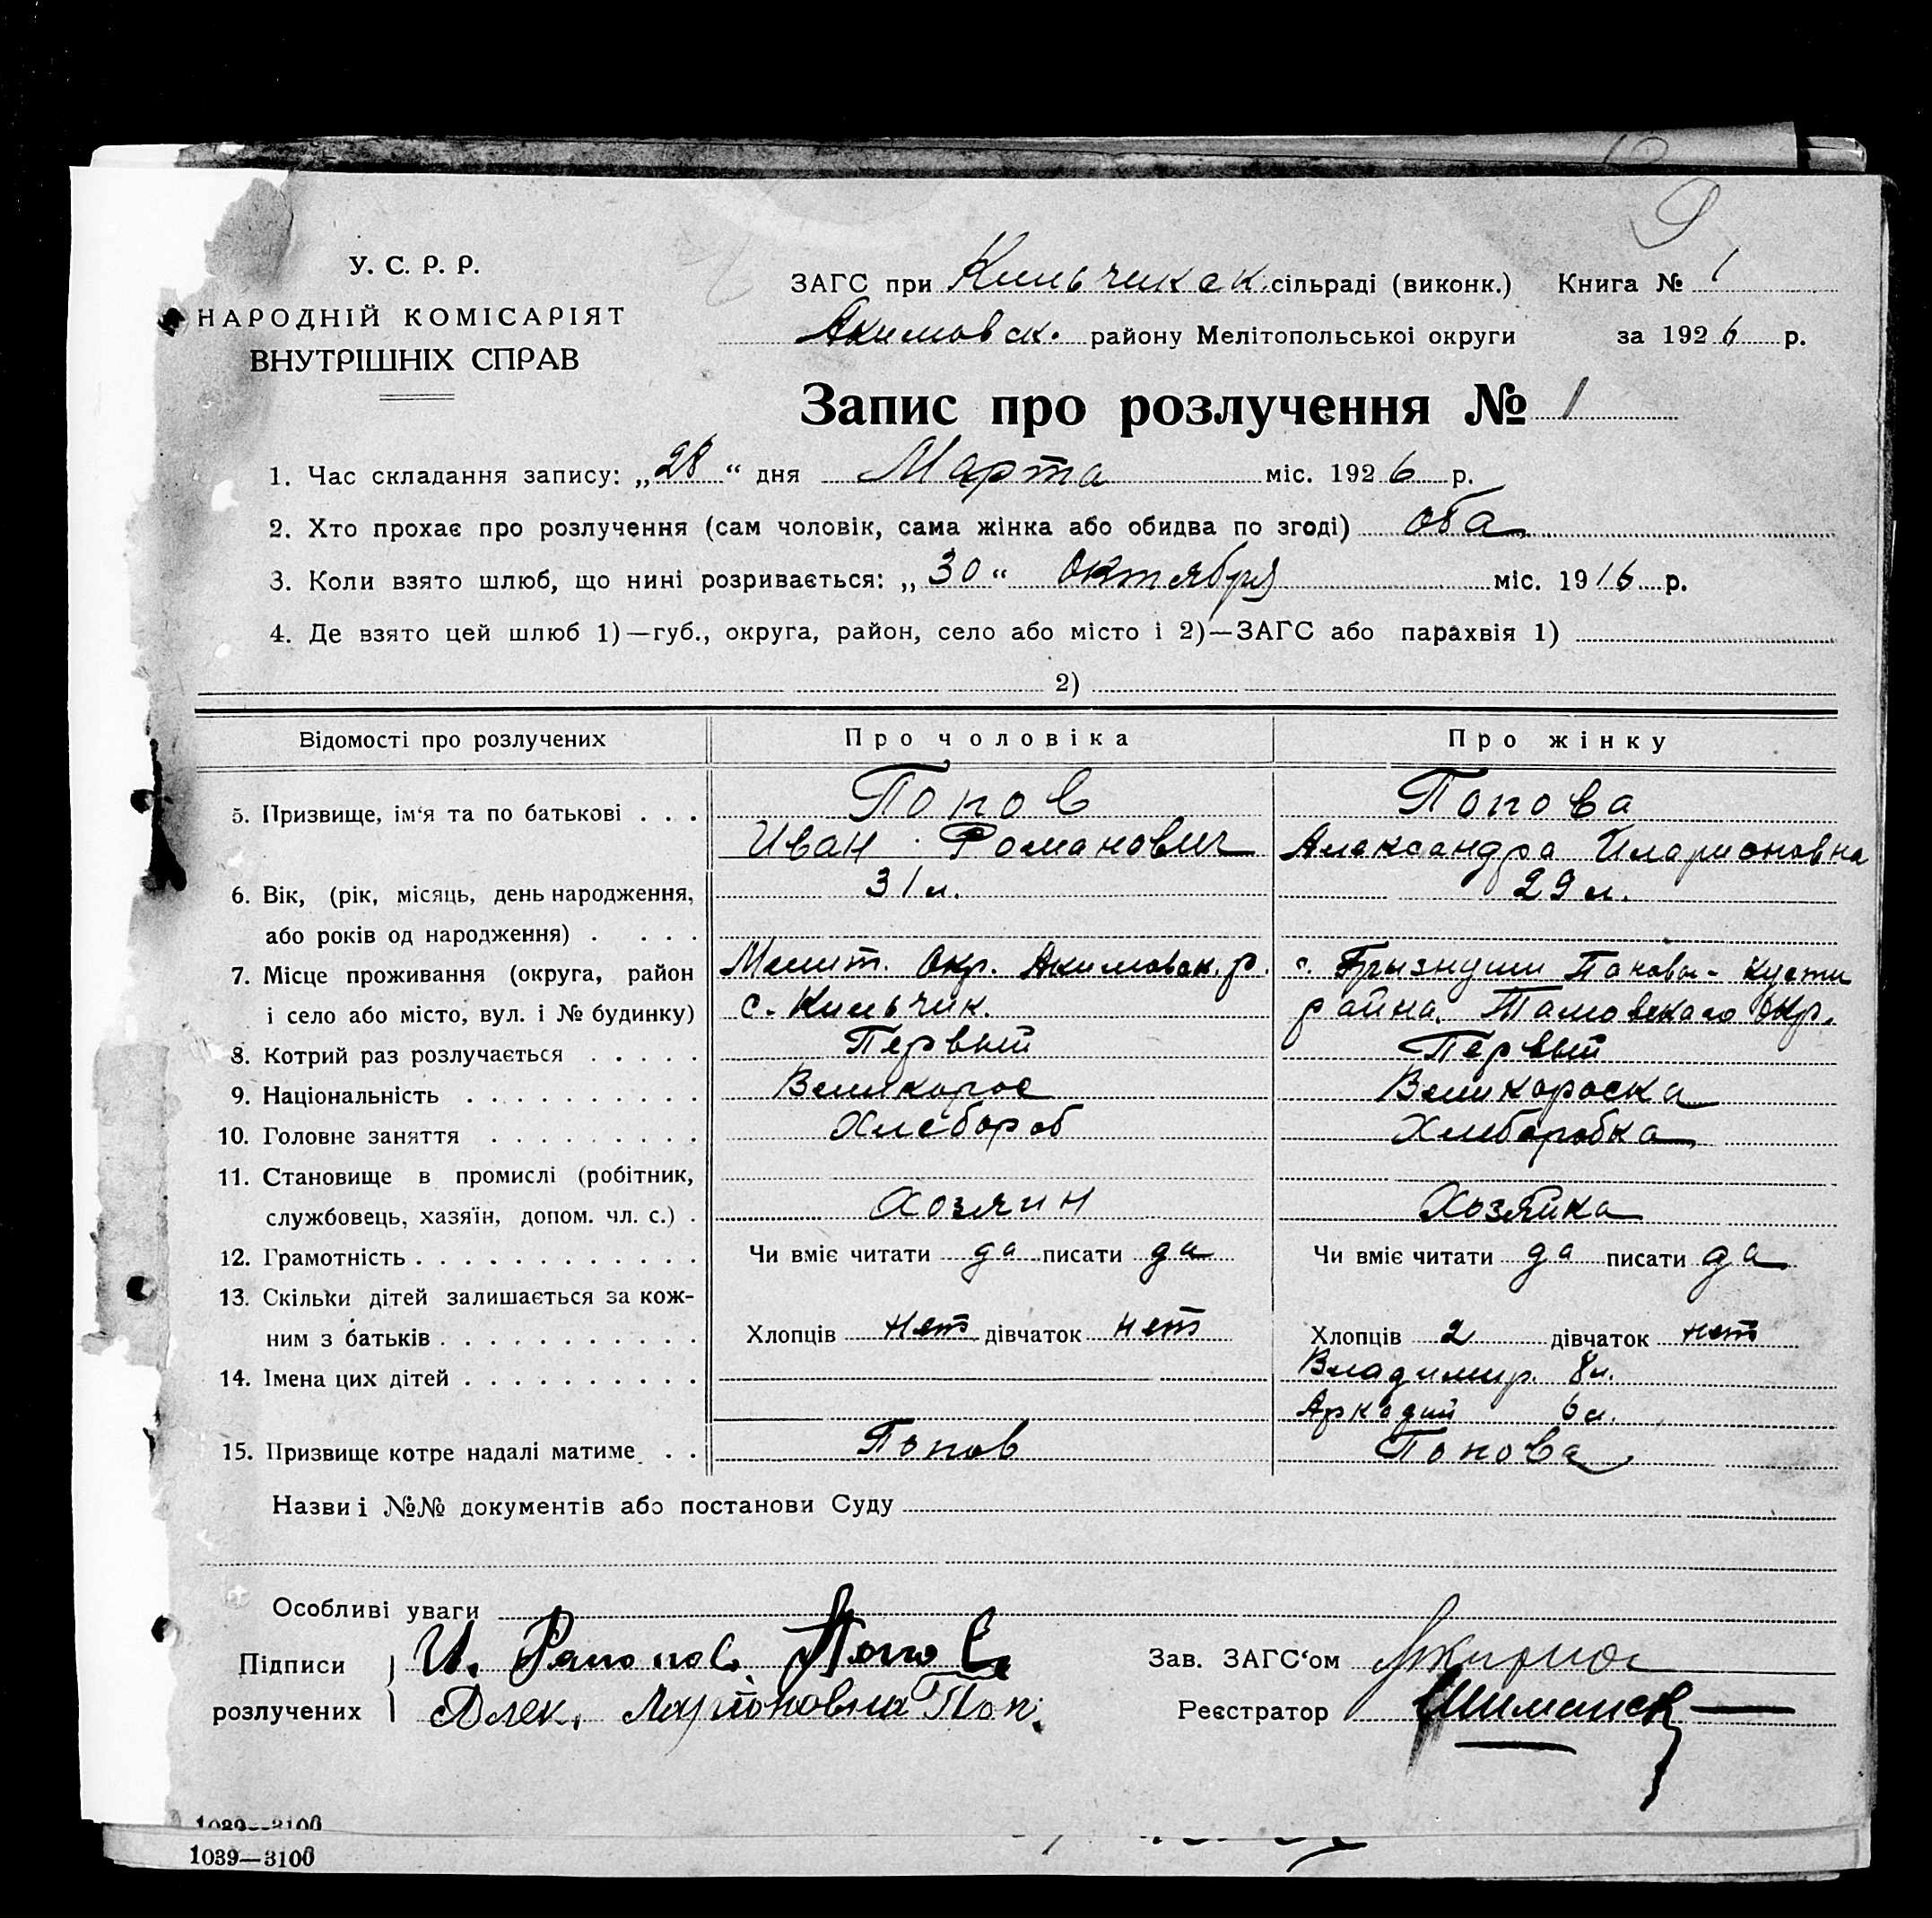 У. С. Р. Р.
НАРОДНІЙ КОМІСАРІЯТ
ВНУТРІШНІХ СПРАВ
ЗАГС при Кильчикск. сільраді (виконк.) Книга № 1
Акимовск. району Мелітопольської округи за 1926 р.
Запис про розлучення № 1
1. Час складання запису: „28“ дня Марта міс. 1926 р.
2. Хто прохає про розлучення (сам чоловік, сама жінка або обидва по згоді) оба
3. Коли взято шлюб, що нині розривається: „30“ Октября міс. 1916 р.
4. Де взято цей шлюб 1)—губ., округа, район, село або місто і 2)—ЗАГС або парахвія 1)
2)
Відомості про розлучених Про чоловіка Про жінку
5. Призвище, ім‘я та по батькові . . . Попов Попова
Иван Романович Александра Иларионовна
6. Вік, (рік, місяць, день народження, 31 л. 29 л.
або років од народження) . . . .
7. Місце проживання (округа, район Мелит. Окр. Акимовск. р. с.
і село або місто, вул. і № будинку) с. Кильчик. района, Окр.
8. Котрий раз розлучається . . . . . Первый Первый
9. Національність . . . . . . . . . . Великорос Великороска
10. Головне заняття . . . . . . . . . Хлебороб Хлеборобка
11. Становище в промислі (робітник,
службовець, хазяїн, допом. чл. с.) . Хозяин Хозяйка
12. Грамотність . . . . . . . . . . . . Чи вміє читати да писати да Чи вміє читати да писати да
13. Скільки дітей залишається за кож-
ним з батьків . . . . . . . . . . . Хлопців нет дівчаток нет Хлопців 2 дівчаток нет
14. Імена цих дітей . . . . . . . . . . Владимир. 8 л.
Аркадий 6 л.
15. Призвище котре надалі матиме . . Попов Попова
Назви і №№ документів або постанови Суду
Особливі уваги
Підписи И. Попов Зав. ЗАГС‘ом
розлучених Алек. Ларионовна Поп. Реєстратор
1039—3100
1039—3100